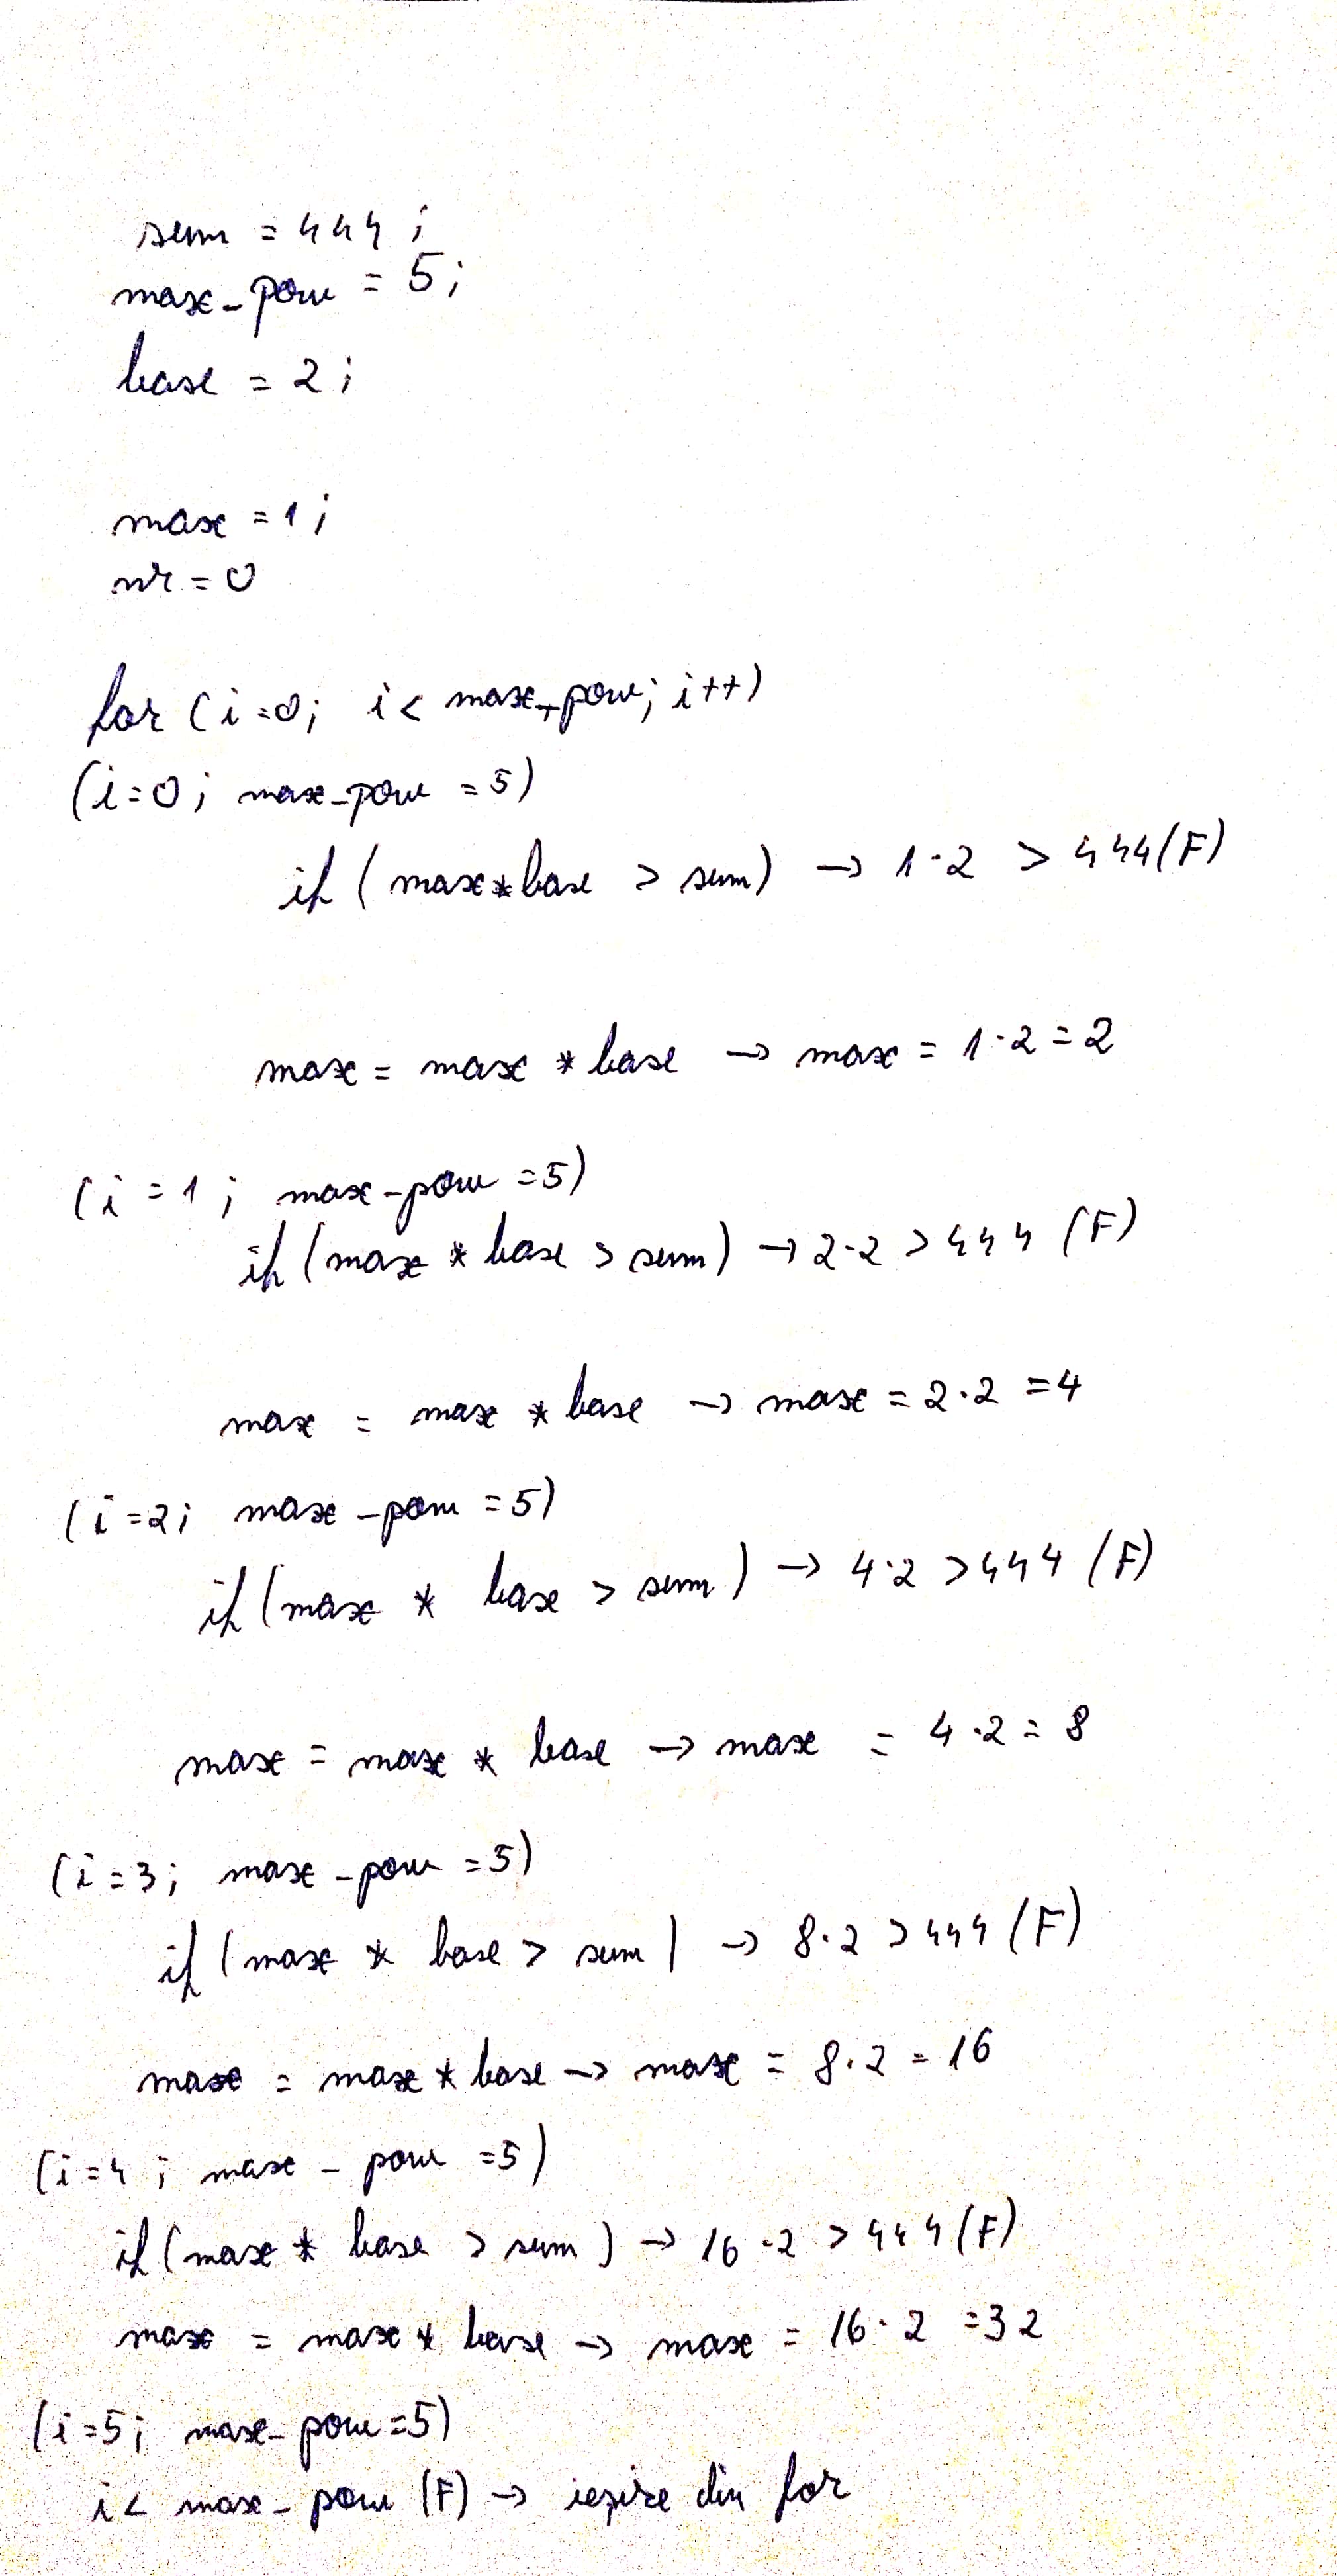 sum = 444;
max_pow = 5;
base = 2;
max = 1;
nr = 0
for (i=0; i < max_pow; i++)
(i=0; max_pow = 5)
if (max*base > sum) → 1·2 > 444(F)
max = max * base → max = 1·2 = 2
(i = 1; max_pow = 5)
if (max * base > sum) → 2·2 > 444 (F)
max = max * base → max = 2·2 = 4
(i=2; max_pow = 5)
if (max * base > sum) → 4·2 > 444 (F)
max = max * base → max = 4·2 = 8
(i=3; max_pow = 5)
if (max * base > sum) → 8·2 > 444 (F)
max = max * base → max = 8·2 = 16
(i=4; max_pow = 5)
if (max * base > sum) → 16·2 > 444 (F)
max = max * base → max = 16·2 = 32
(i=5; max_pow=5)
i < max_pow (F) → ieșire din for